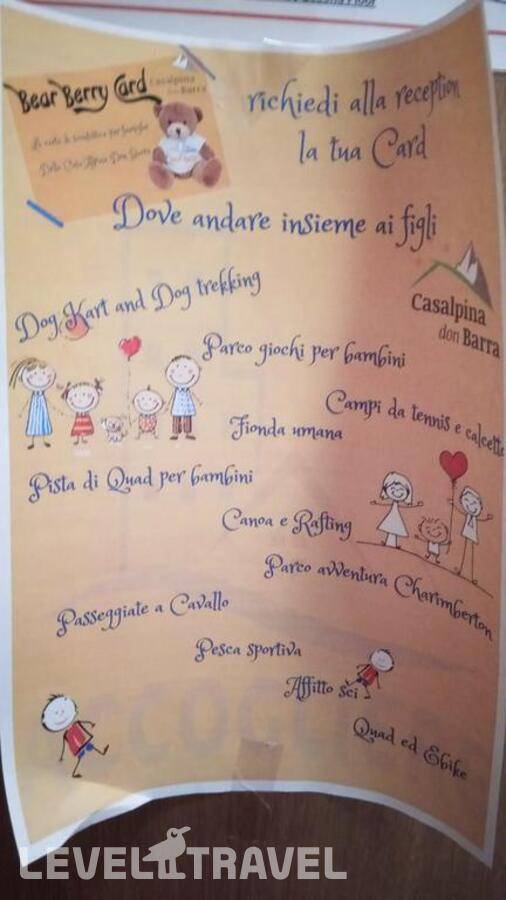 Bear Berry Card
Casalpina
don Barra
richiedi alla reception
la tua Card
Dove andare insieme ai figli
Casalpina
don Barra
Dog Kart and Dog trekking
Parco giochi per bambini
Campi da tennis e calcetto
Fionda umana
Pista di Quad per bambini
Canoa e Rafting
Parco avventura Charimberton
Passeggiate a Cavallo
Pesca sportiva
Affitto sci
Quad ed Ebike
LEVEL TRAVEL